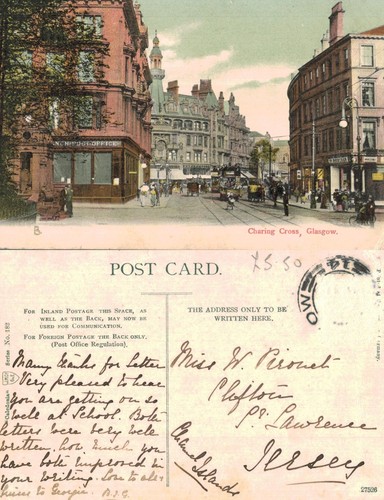 B.
Charing Cross, Glasgow.
POST CARD.
£5.50
FOR INLAND POSTAGE THIS SPACE, AS
WELL AS THE BACK, MAY NOW BE
USED FOR COMMUNICATION.
FOR FOREIGN POSTAGE THE BACK ONLY.
(Post Office Regulation).
THE ADDRESS ONLY TO BE
WRITTEN HERE.
Series No. 182
Many thanks for letter
Very pleased to hear
you are getting on so
well at School. Both
letters were very well
written, how much you
have both improved in
your writing. Love to all
kisses to Georgie.
Miss W. Pironet
Clifton
St. Lawrence
Jersey
Channel Island
27506